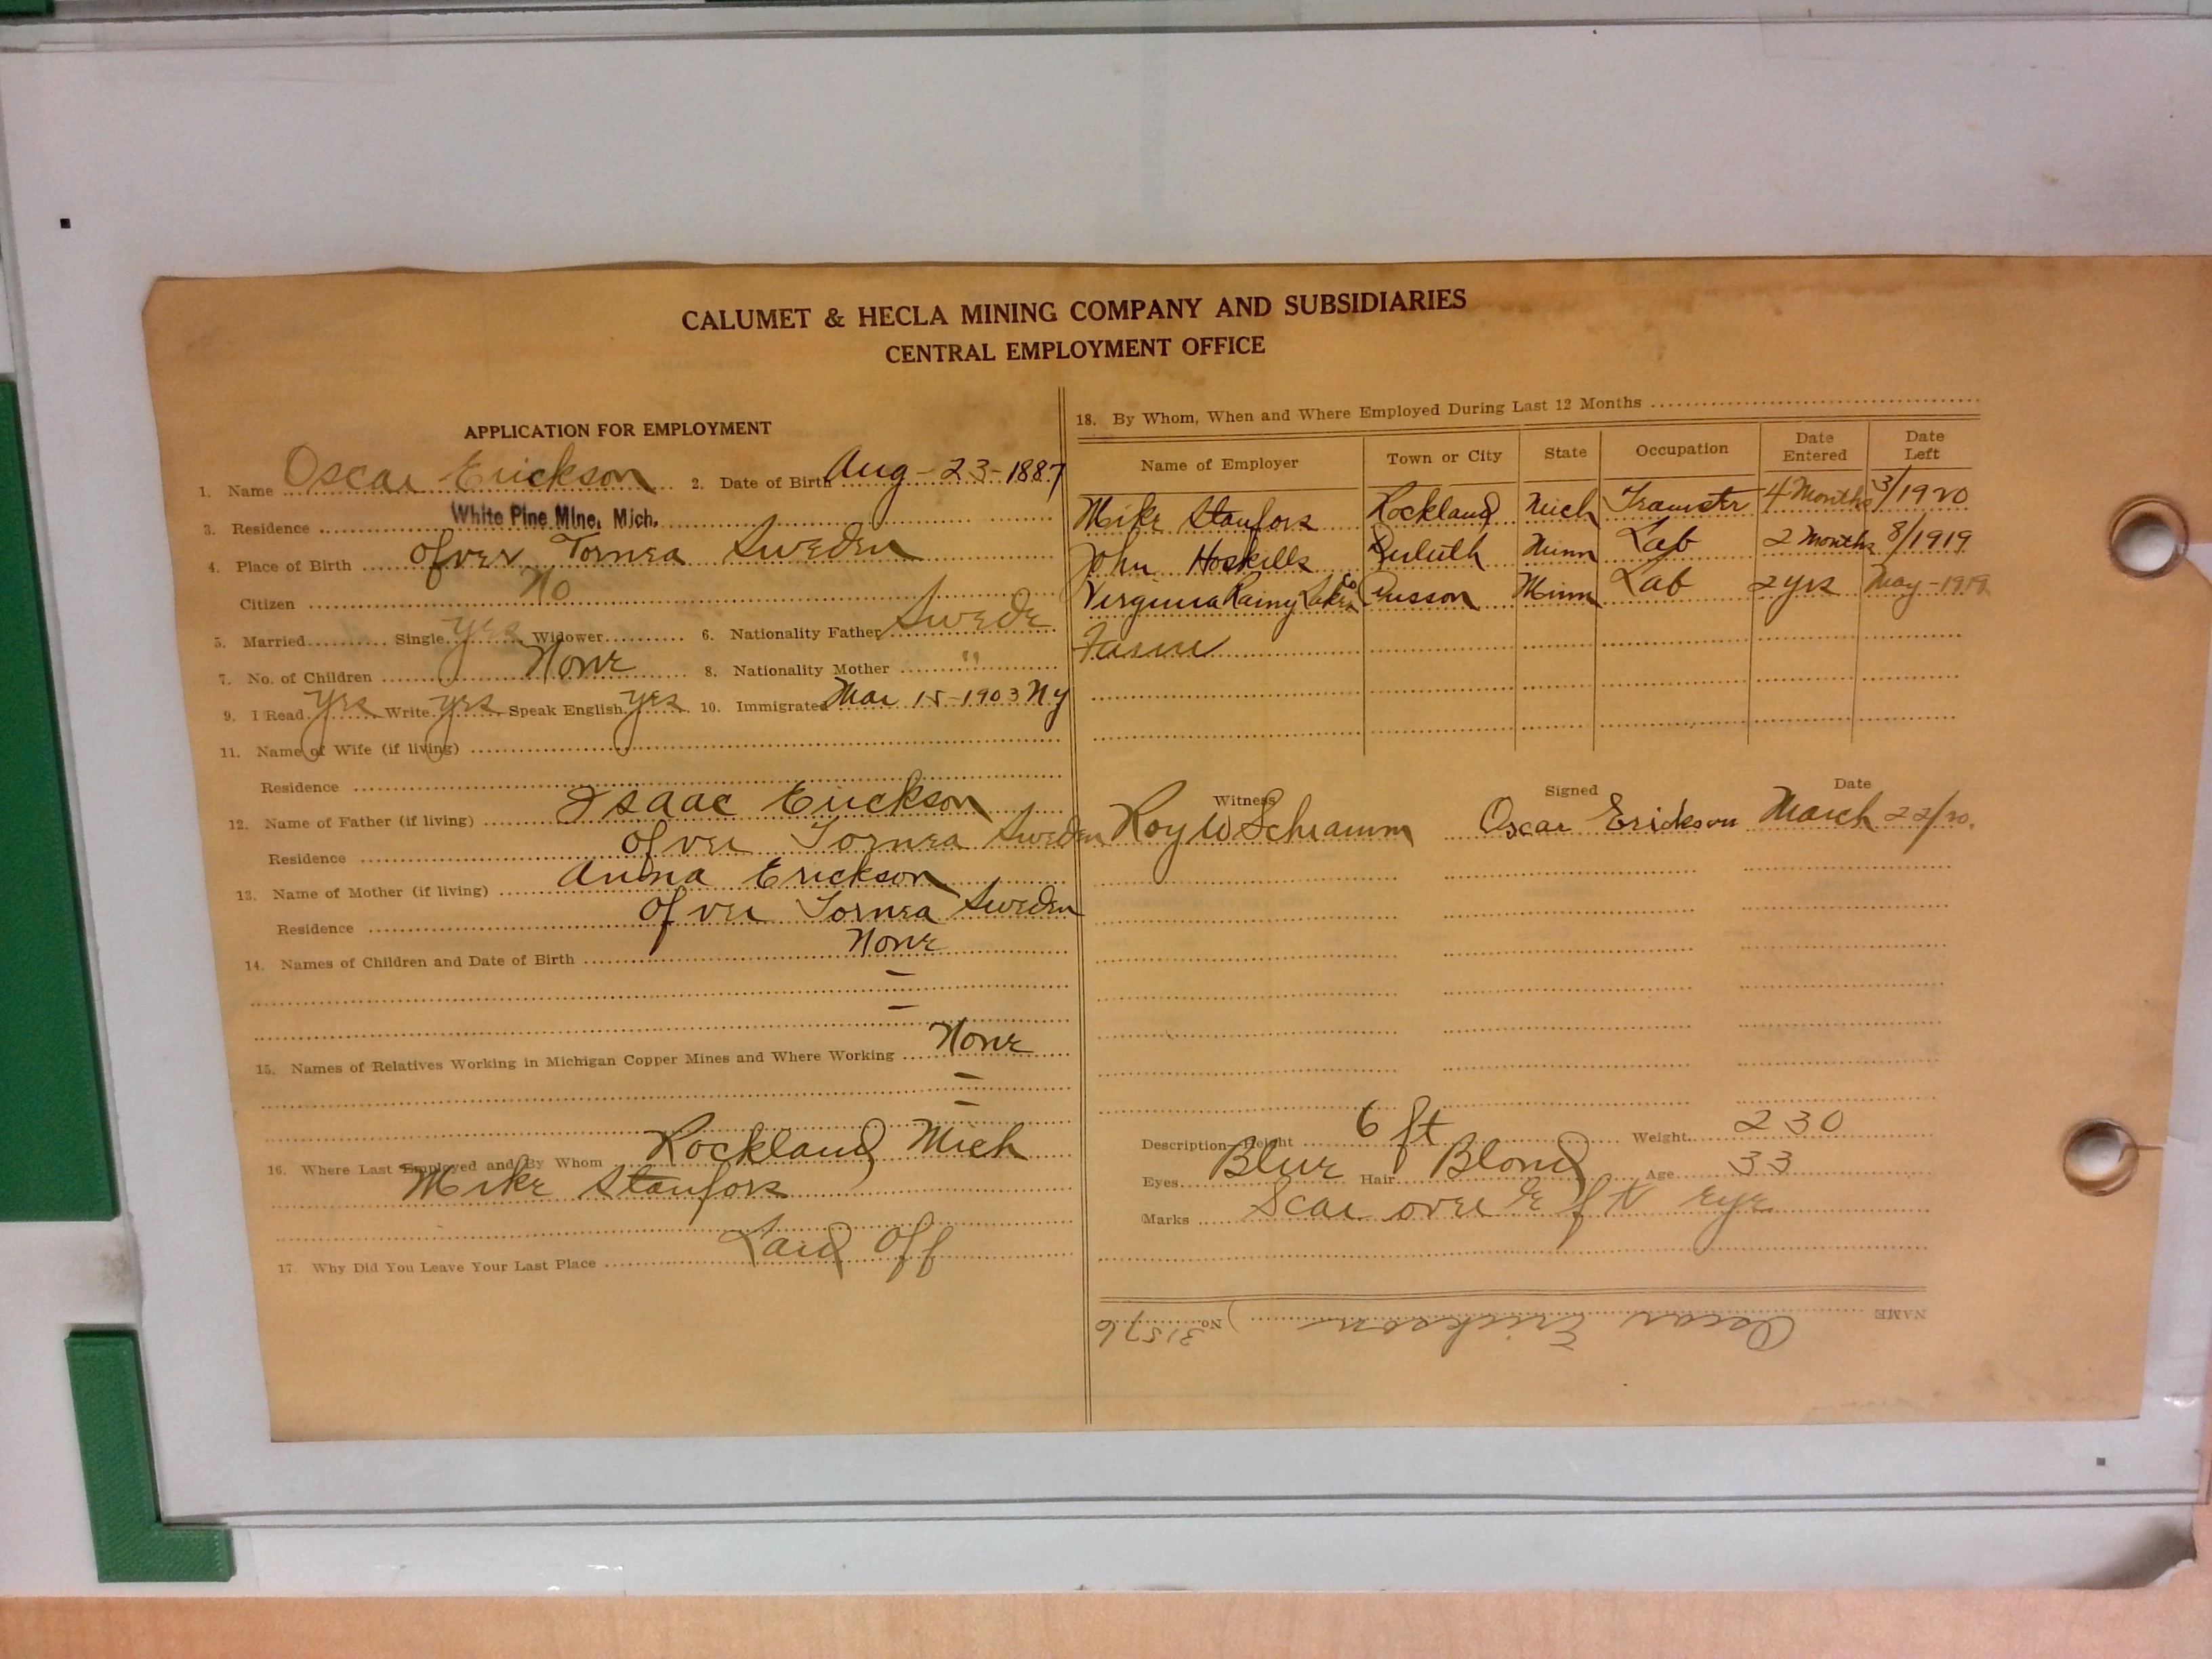 CALUMET & HECLA MINING COMPANY AND SUBSIDIARIES
CENTRAL EMPLOYMENT OFFICE
APPLICATION FOR EMPLOYMENT
1. Name Oscar Erickson 2. Date of Birth Aug-23-1887
3. Residence White Pine Mine, Mich.
4. Place of Birth Ofver Tornea Sweden
Citizen No
5. Married Single yes Widower 6. Nationality Father Swede
7. No. of Children None 8. Nationality Mother "
9. I Read yes Write yes Speak English yes 10. Immigrated Mar 15-1903 Ny
11. Name of Wife (if living)
Residence
12. Name of Father (if living) Isaac Erickson
Residence Ofver Tornea Sweden
13. Name of Mother (if living) Anna Erickson
Residence Ofver Tornea Sweden
14. Names of Children and Date of Birth None
—
—
15. Names of Relatives Working in Michigan Copper Mines and Where Working None
—
—
16. Where Last Employed and By Whom Rockland Mich
Mike Stanfors
17. Why Did You Leave Your Last Place Laid Off
18. By Whom, When and Where Employed During Last 12 Months
Name of Employer Town or City State Occupation Date Entered Date Left
Mike Stanfors Rockland Mich 4 Months 3/1920
John Hoskills Duluth Minn Lab 2 Months 8/1919
Virginia Rainy Lake Co Cusson Minn Lab 2 yrs May-1919
Witness Signed Date
Roy W Schramm Oscar Erickson March 22/20.
Description—Height 6 ft Weight 230
Eyes Blue Hair Blond Age 33
Marks Scar over left eye
NAME Oscar Erickson No. 31576